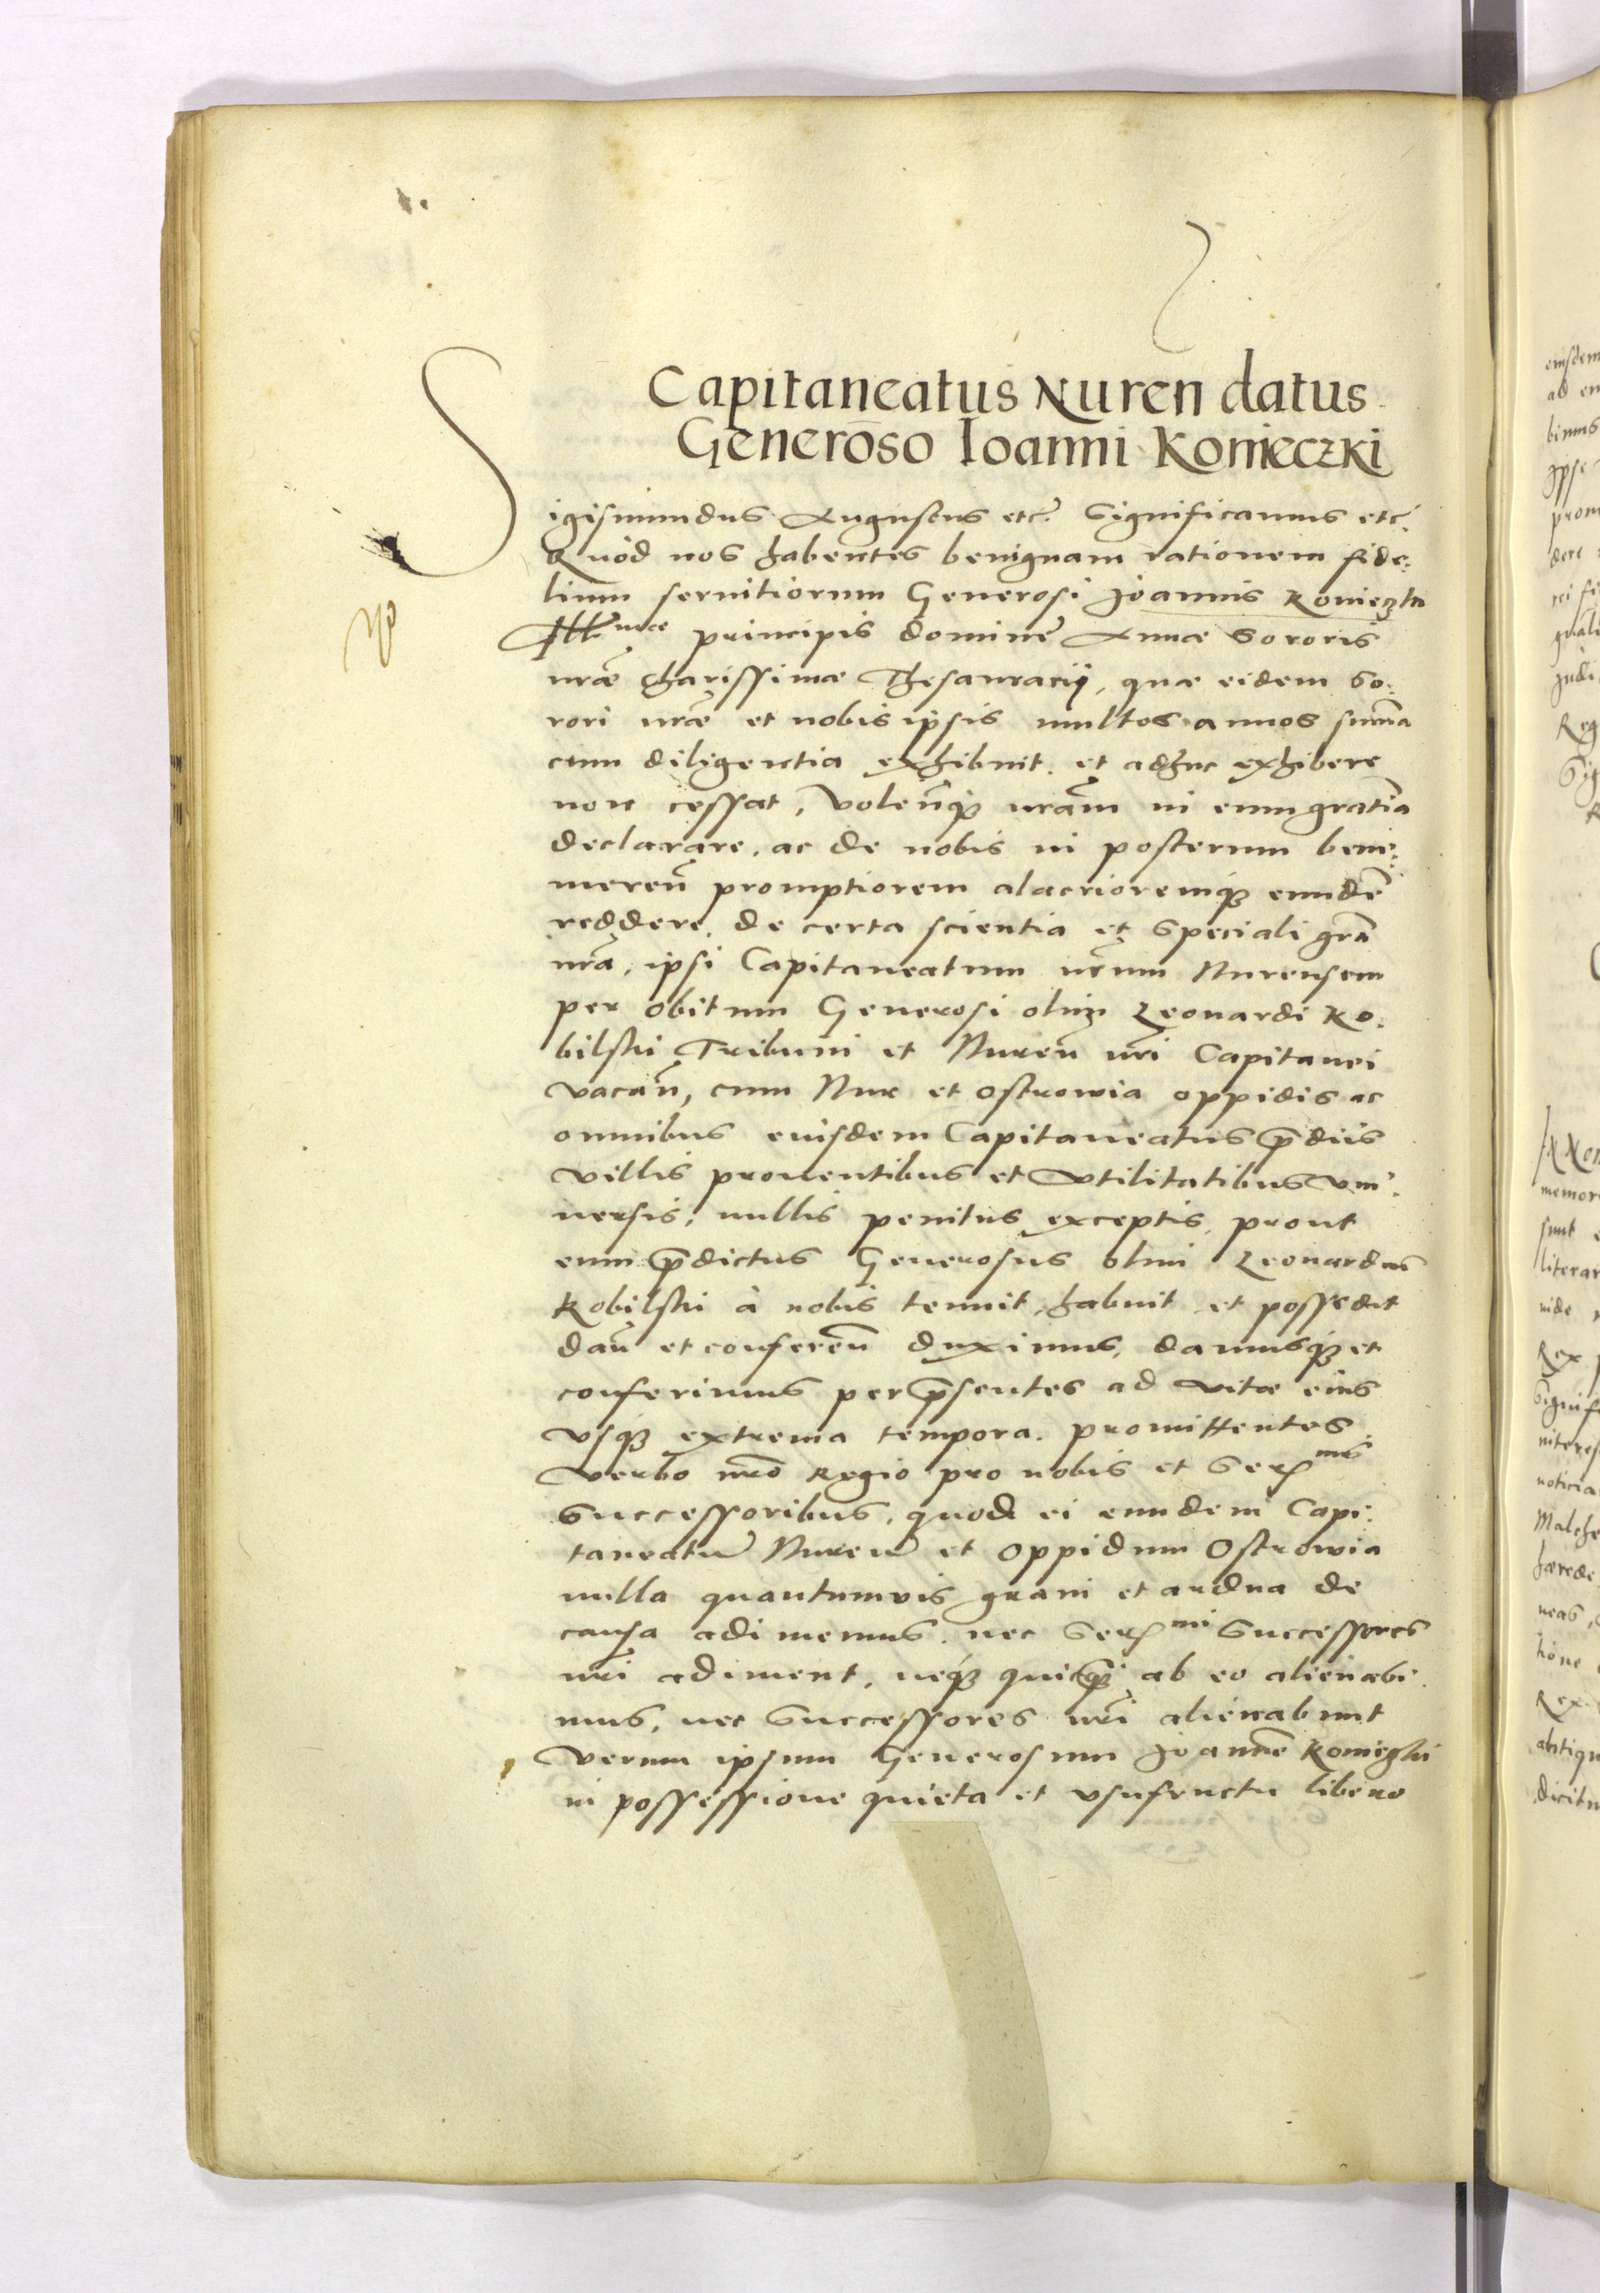 Capitaneatus Nuren datus
Generoso Ioanni Konieczki
Sigismundus Augustus etc. Significamus etc.
Quòd nos habentes benignam rationem fide:
lium seruitiorum Generosi Joannis Konieczki
Ill^mae principis domine Annae Sororis
nrae charissimae Thesaurarij, quae eidem So:
rori nrae et nobis ipsis multos annos summa
cum diligentia exhibuit. et adhuc exhibere
non cessat, Volen̄q́ꝫ nram̄ in eum gratiā
declarare, ac de nobis in posterum bene:
meren̄ promptiorem alacrioremq́ꝫ eundē
reddere, de certa scientia et Speciali grā
nrā, ipsi Capitaneatum nrum̄ Nurensem
per obitum Generosi olim Leonardi Ko:
bilski Tribuni et Nuren̄ nrī Capitanei
vacan̄, cum Nur et Ostrowia oppidis ac
omnibus eiusdem Capitaneatus p̄diis
villis prouentibus et vtilitatibus vni:
uersis, nullis penitus exceptis, prout
eum p̄dictus Generosus olim Leonardus
Kobilski à nobis tenuit, habuit et possedit
dan̄ et conferen̄ duximus, damusq́ꝫ et
conferimus per p̄sentes ad vitae eius
vsq́ꝫ extrema tempora. promittentes
verbo nrō Regio pro nobis et Ser^mis
Successoribus, quod ei eundem Capi:
taneatū Nuren̄ et oppidum Ostrowia
nulla quantumuis graui et ardua de
causa adimemus, nec Ser^mi Successores
nrī adiment, neq́ꝫ quicq̄ ab eo alienabi:
mus, nec Successores nrī alienabunt
verum ipsum Generosum Joannē Konieczki
in possessione quieta et vsufructu libero